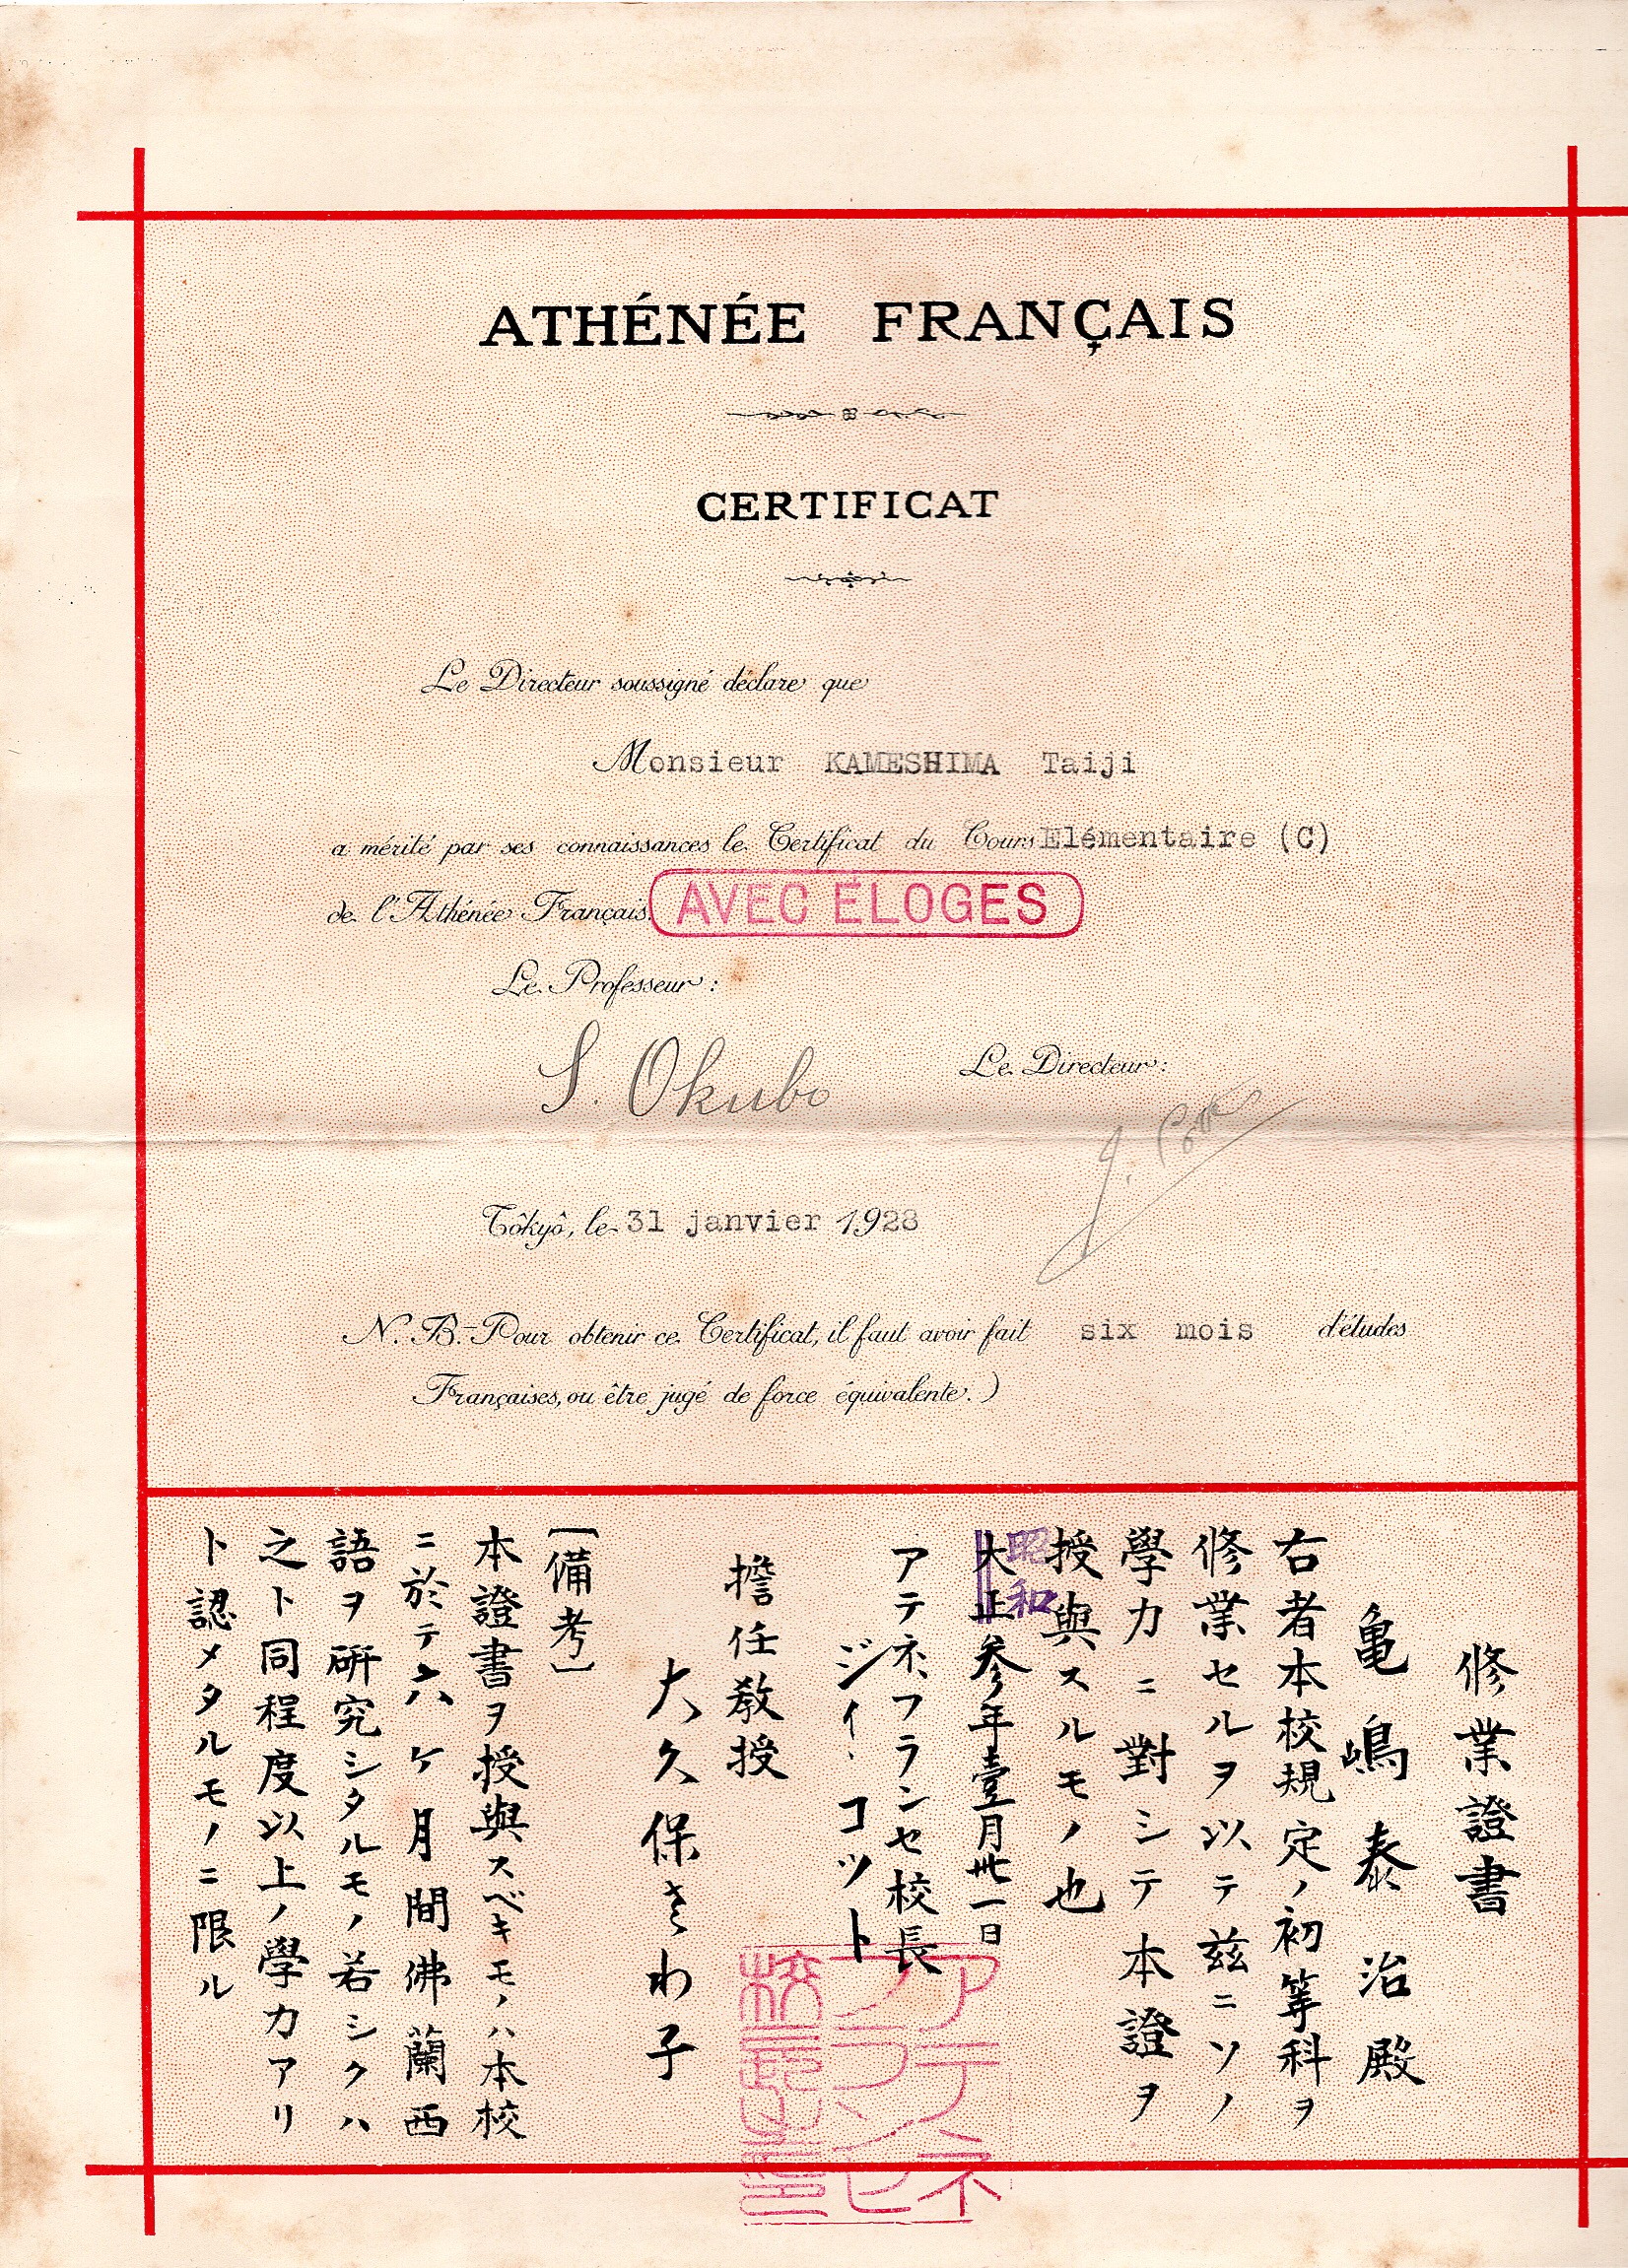 ATHÉNÉE FRANÇAIS
CERTIFICAT
Le Directeur soussigné déclare que
Monsieur KAMESHIMA Taiji
a mérité par ses connaissances le Certificat du Cours Elémentaire (C)
de l'Athénée Français.
AVEC ÉLOGES
Le Professeur :
S. Okubo
Le Directeur :
J. Cotte
Tôkyô, le 31 janvier 1928
N. B.-Pour obtenir ce Certificat, il faut avoir fait six mois d'études
Françaises, ou être jugé de force équivalente.)
修業證書
亀嶋泰治殿
右者本校規定ノ初等科ヲ
修業セルヲ以テ茲ニソノ
學力ニ對シテ本證ヲ
授與スルモノ也
昭和
大正参年壹月卅一日
アテネ、フランセ校長
ジイ・コット
擔任教授
大久保さわ子
〔備考〕
本證書ヲ授與スベキモノハ本校
ニ於テ六ヶ月間佛蘭西
語ヲ研究シタルモノ若シクハ
之ト同程度以上ノ學力アリ
ト認メタルモノニ限ル
アテネ
フランセ
校長之印